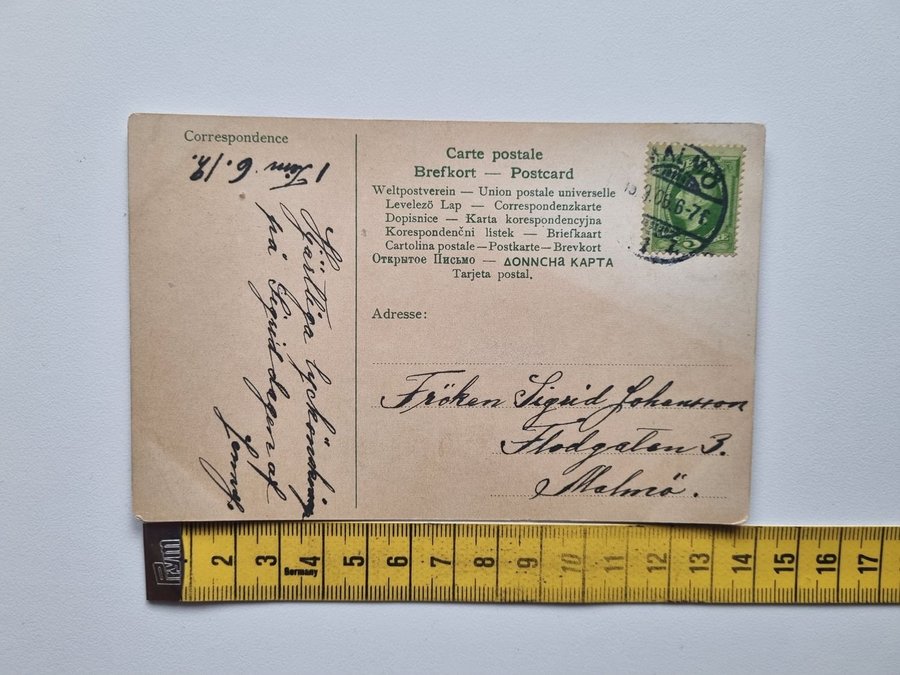 Correspondence
1 Tim. 6. 12.
Hjärtliga lyckönskningar
på Sigriddagen af
Jenny.
Carte postale
Brefkort — Postcard
Weltpostverein — Union postale universelle
Levelezö Lap — Correspondenzkarte
Dopisnice — Karta korespondencyjna
Korespondenční lístek — Briefkaart
Cartolina postale — Postkarte — Brevkort
Открытое Письмо — ΔΟΝΝCHa KAPTA
Tarjeta postal.
Adresse:
MALMÖ
Fröken Sigrid Johansson
Flodgatan 3.
Malmö.
2 3 4 5 6 7 8 9 10 11 12 13 14 15 16 17
Germany
Prym